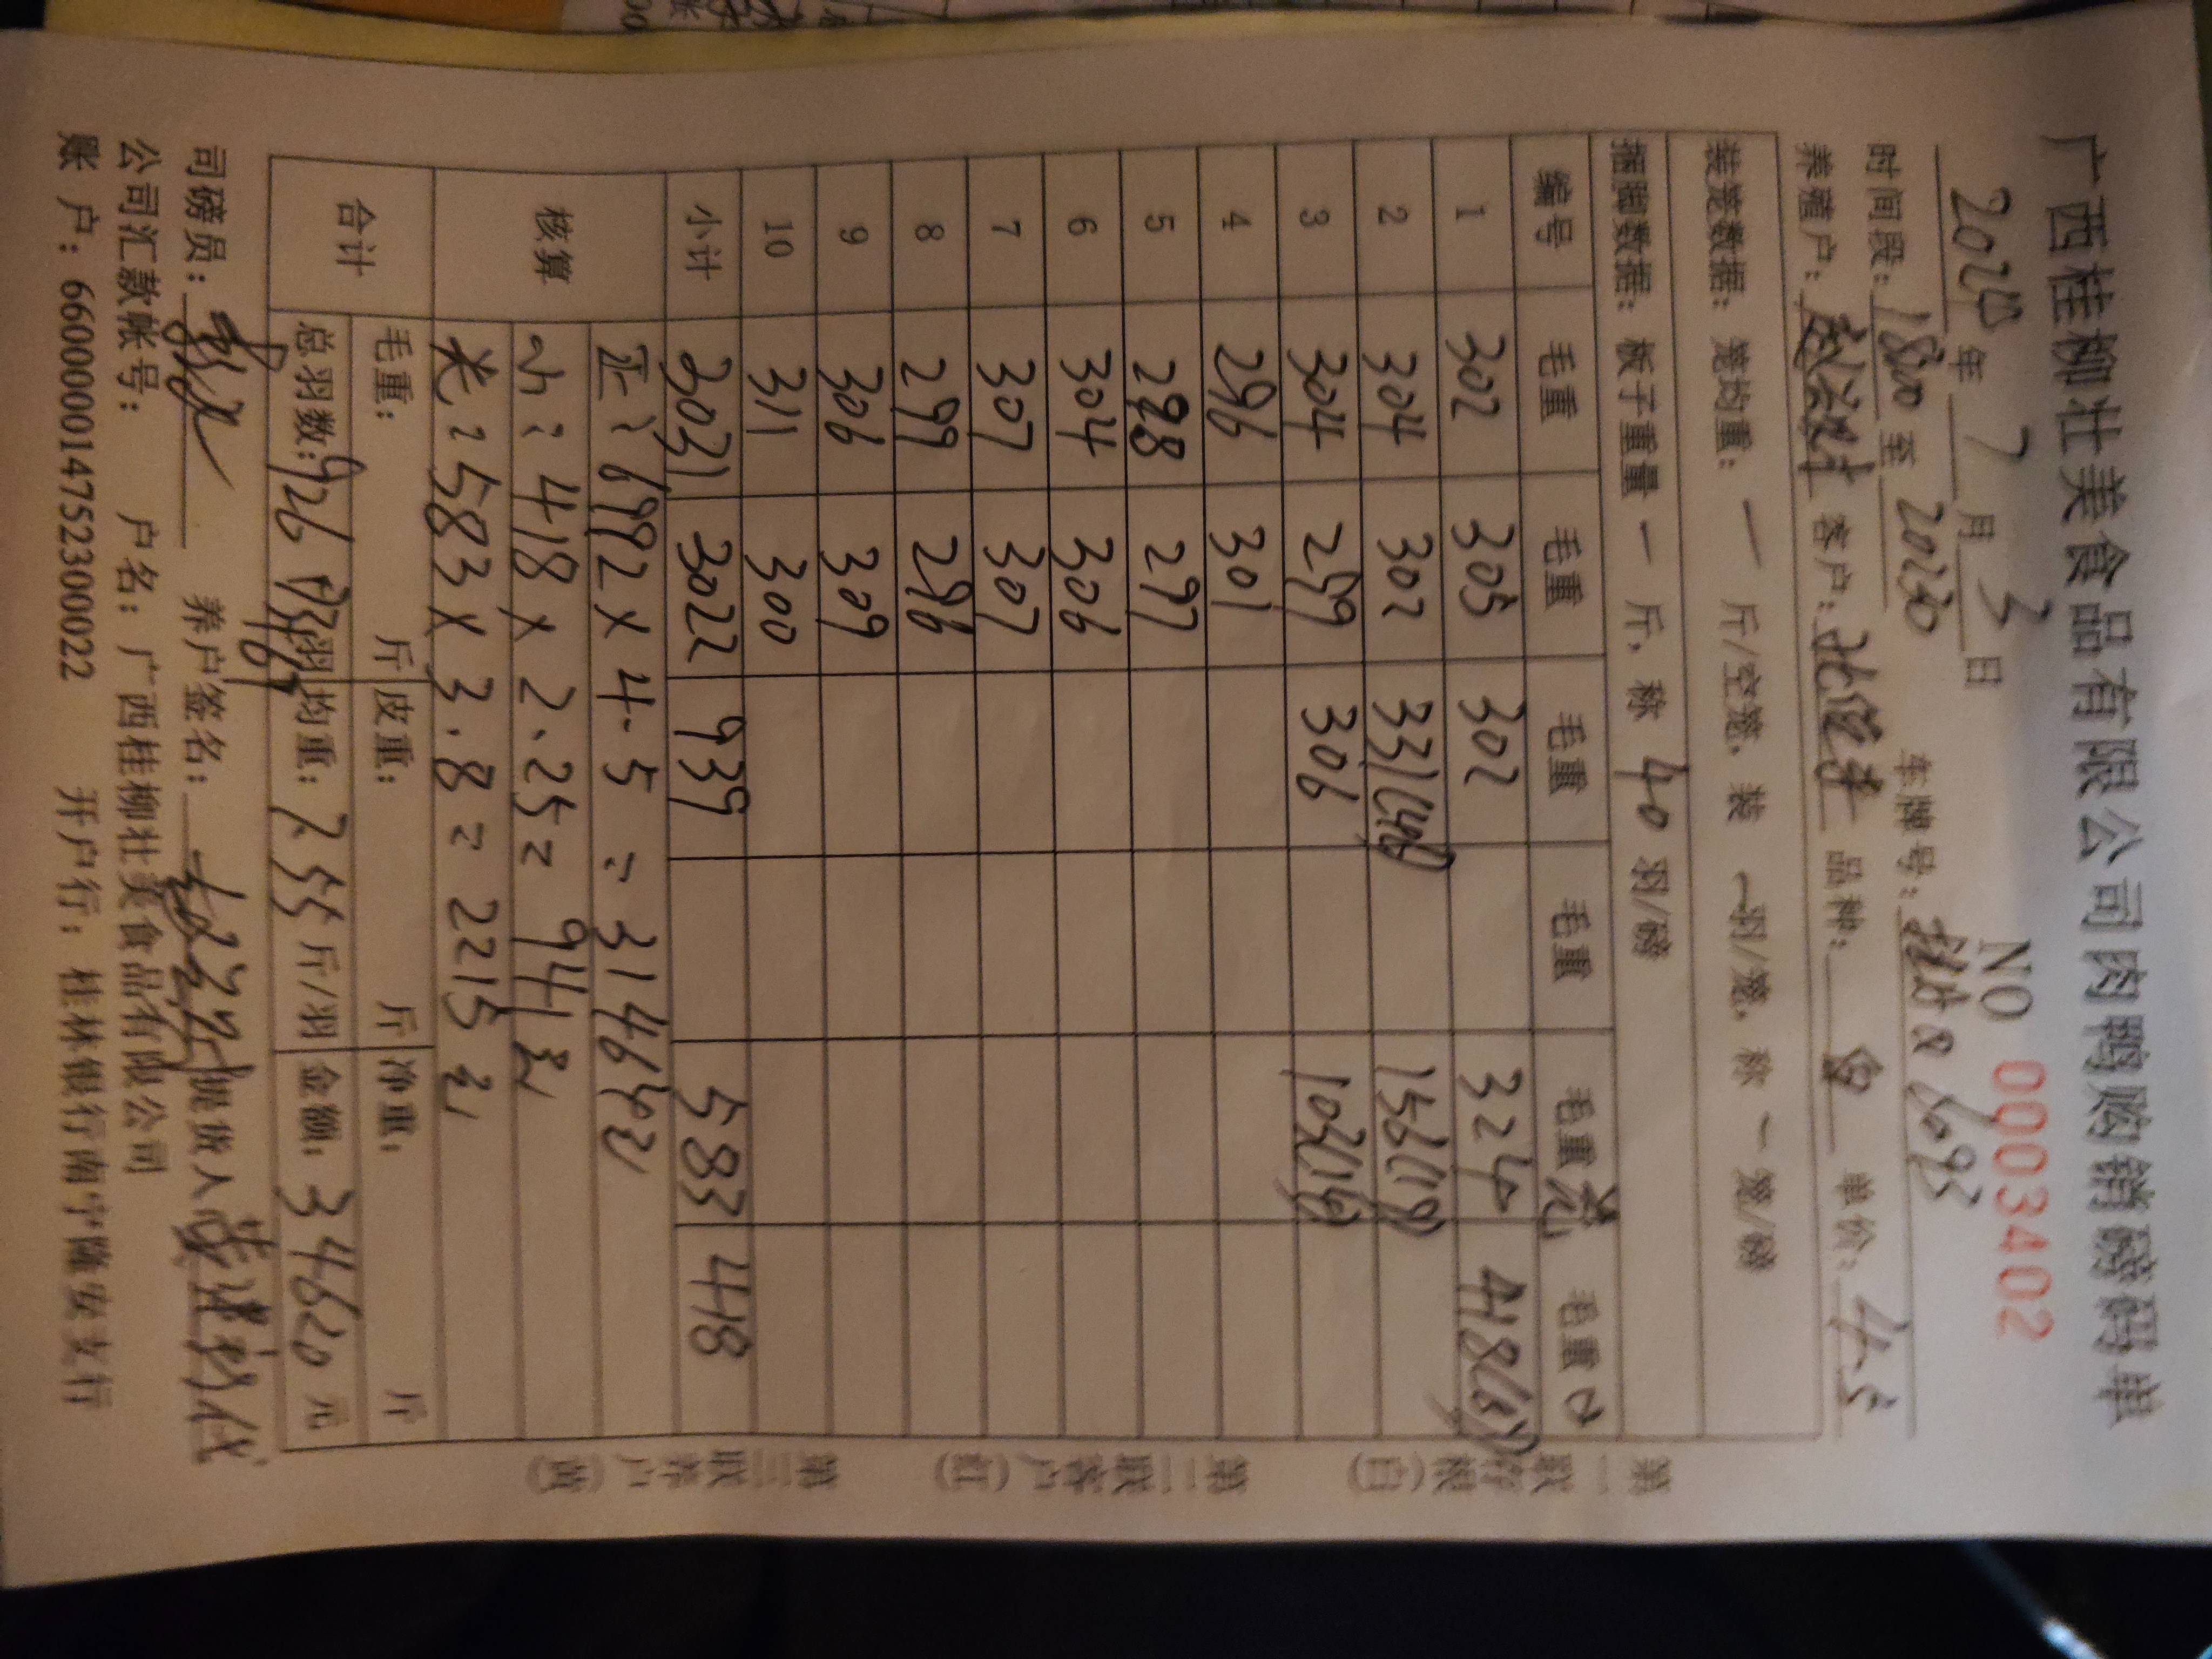 广西桂柳壮美食品有限公司肉鸭购销磅码单
NO 0003402
2024年7月3日
时间段：1800至2030 车牌号：6093
养殖户： 客户： 品种： 单价：4.5
装笼数据：笼均重：一斤/空笼，装一羽/笼，称一笼/磅
捆脚数据：板子重量一斤，称40羽/磅
编号 毛重 毛重 毛重 毛重 毛重 毛重小
1 302 305 302 324 418(
2 304 302 331( 156(19)
3 304 299 306 103(
4 296 301
5 298 297
6 304 306
7 307 307
8 299 296
9 306 309
10 311 300
小计 3031 3022 939 583 418
核算 正：6992×4.5=31464元
小：418×2.25=941元
光：583×3.8=2215元
合计 毛重： 斤 皮重： 斤 净重： 斤
总羽数：926 羽 羽均重：7.55斤/羽 金额：34620元
司磅员： 养户签名： 提货人
公司汇款帐号： 户名：广西桂柳壮美食品有限公司
账户：660000014752300022 开户行：桂林银行南宁隆安支行
第一联存根（白） 第二联客户（红） 第三联养户（黄）